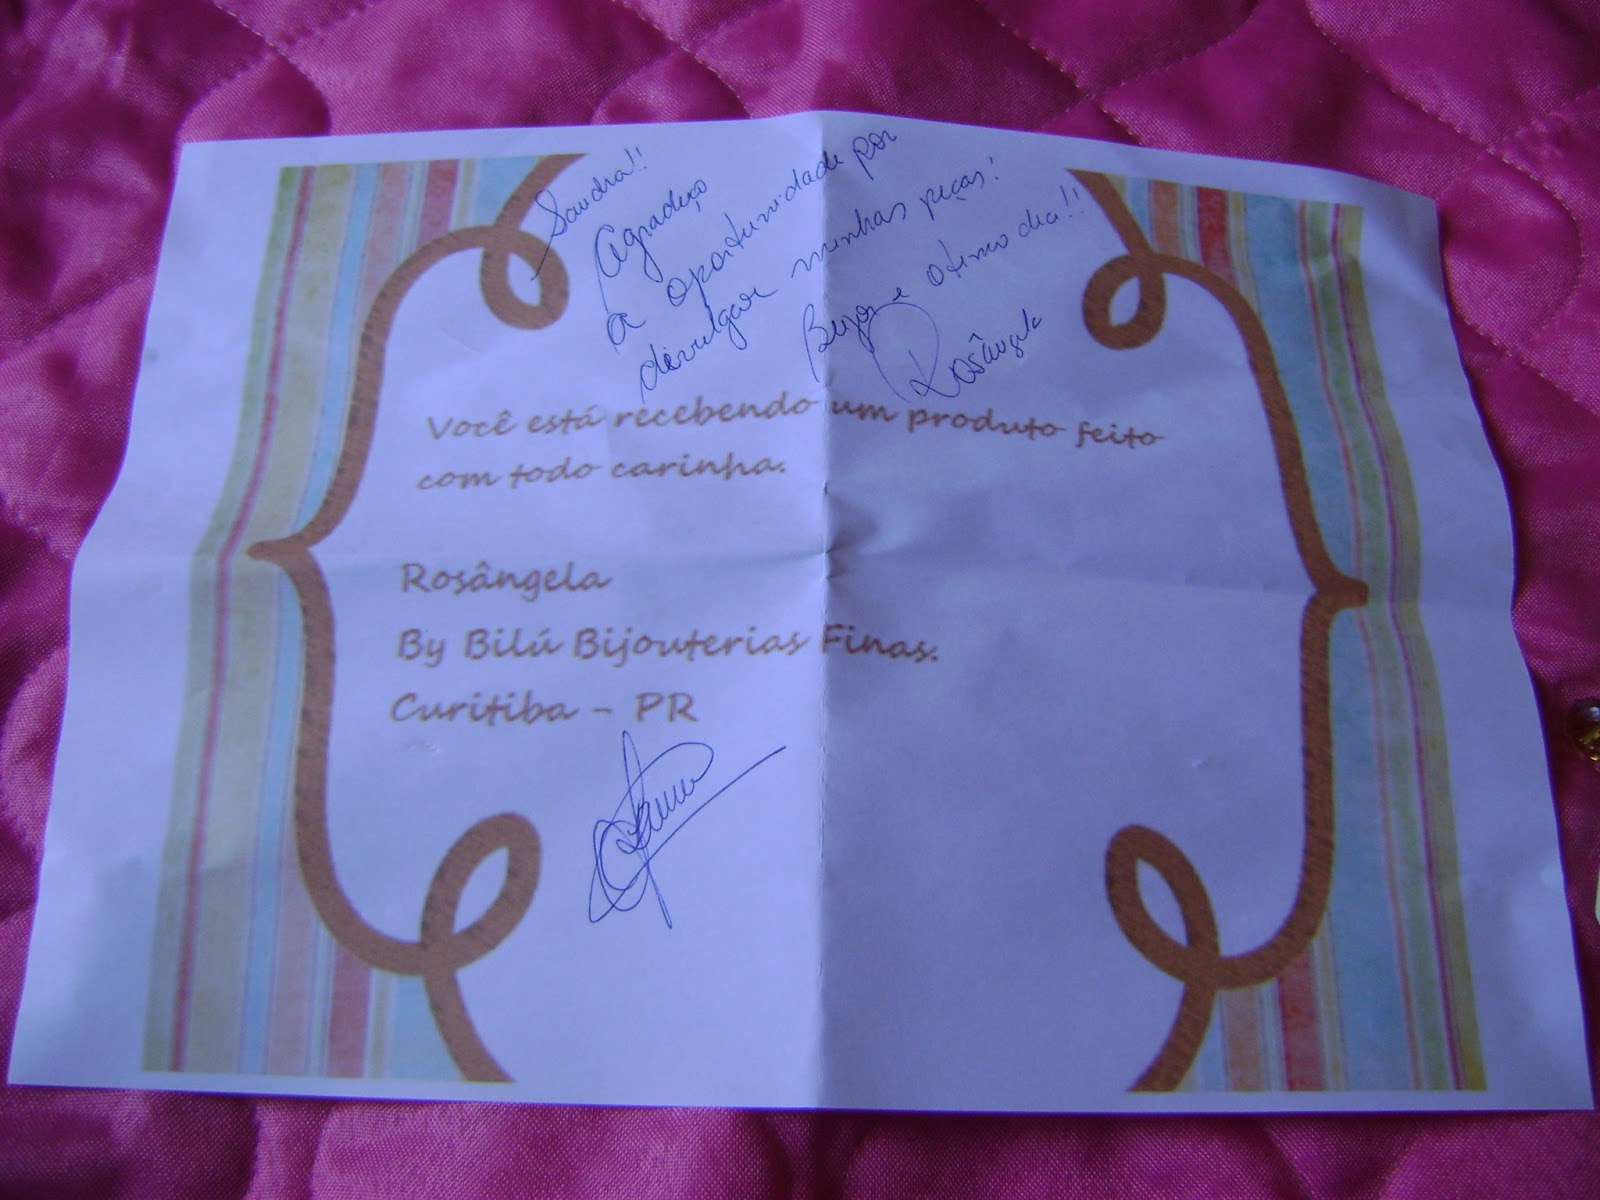 Sandra!!
Agradeço
a oportunidade por
divulgar minhas peças!
Beijos e otimo dia!!
Rosângela
Você está recebendo um produto feito
com todo carinha.
Rosângela
By Bilú Bijouterias Finas.
Curitiba - PR